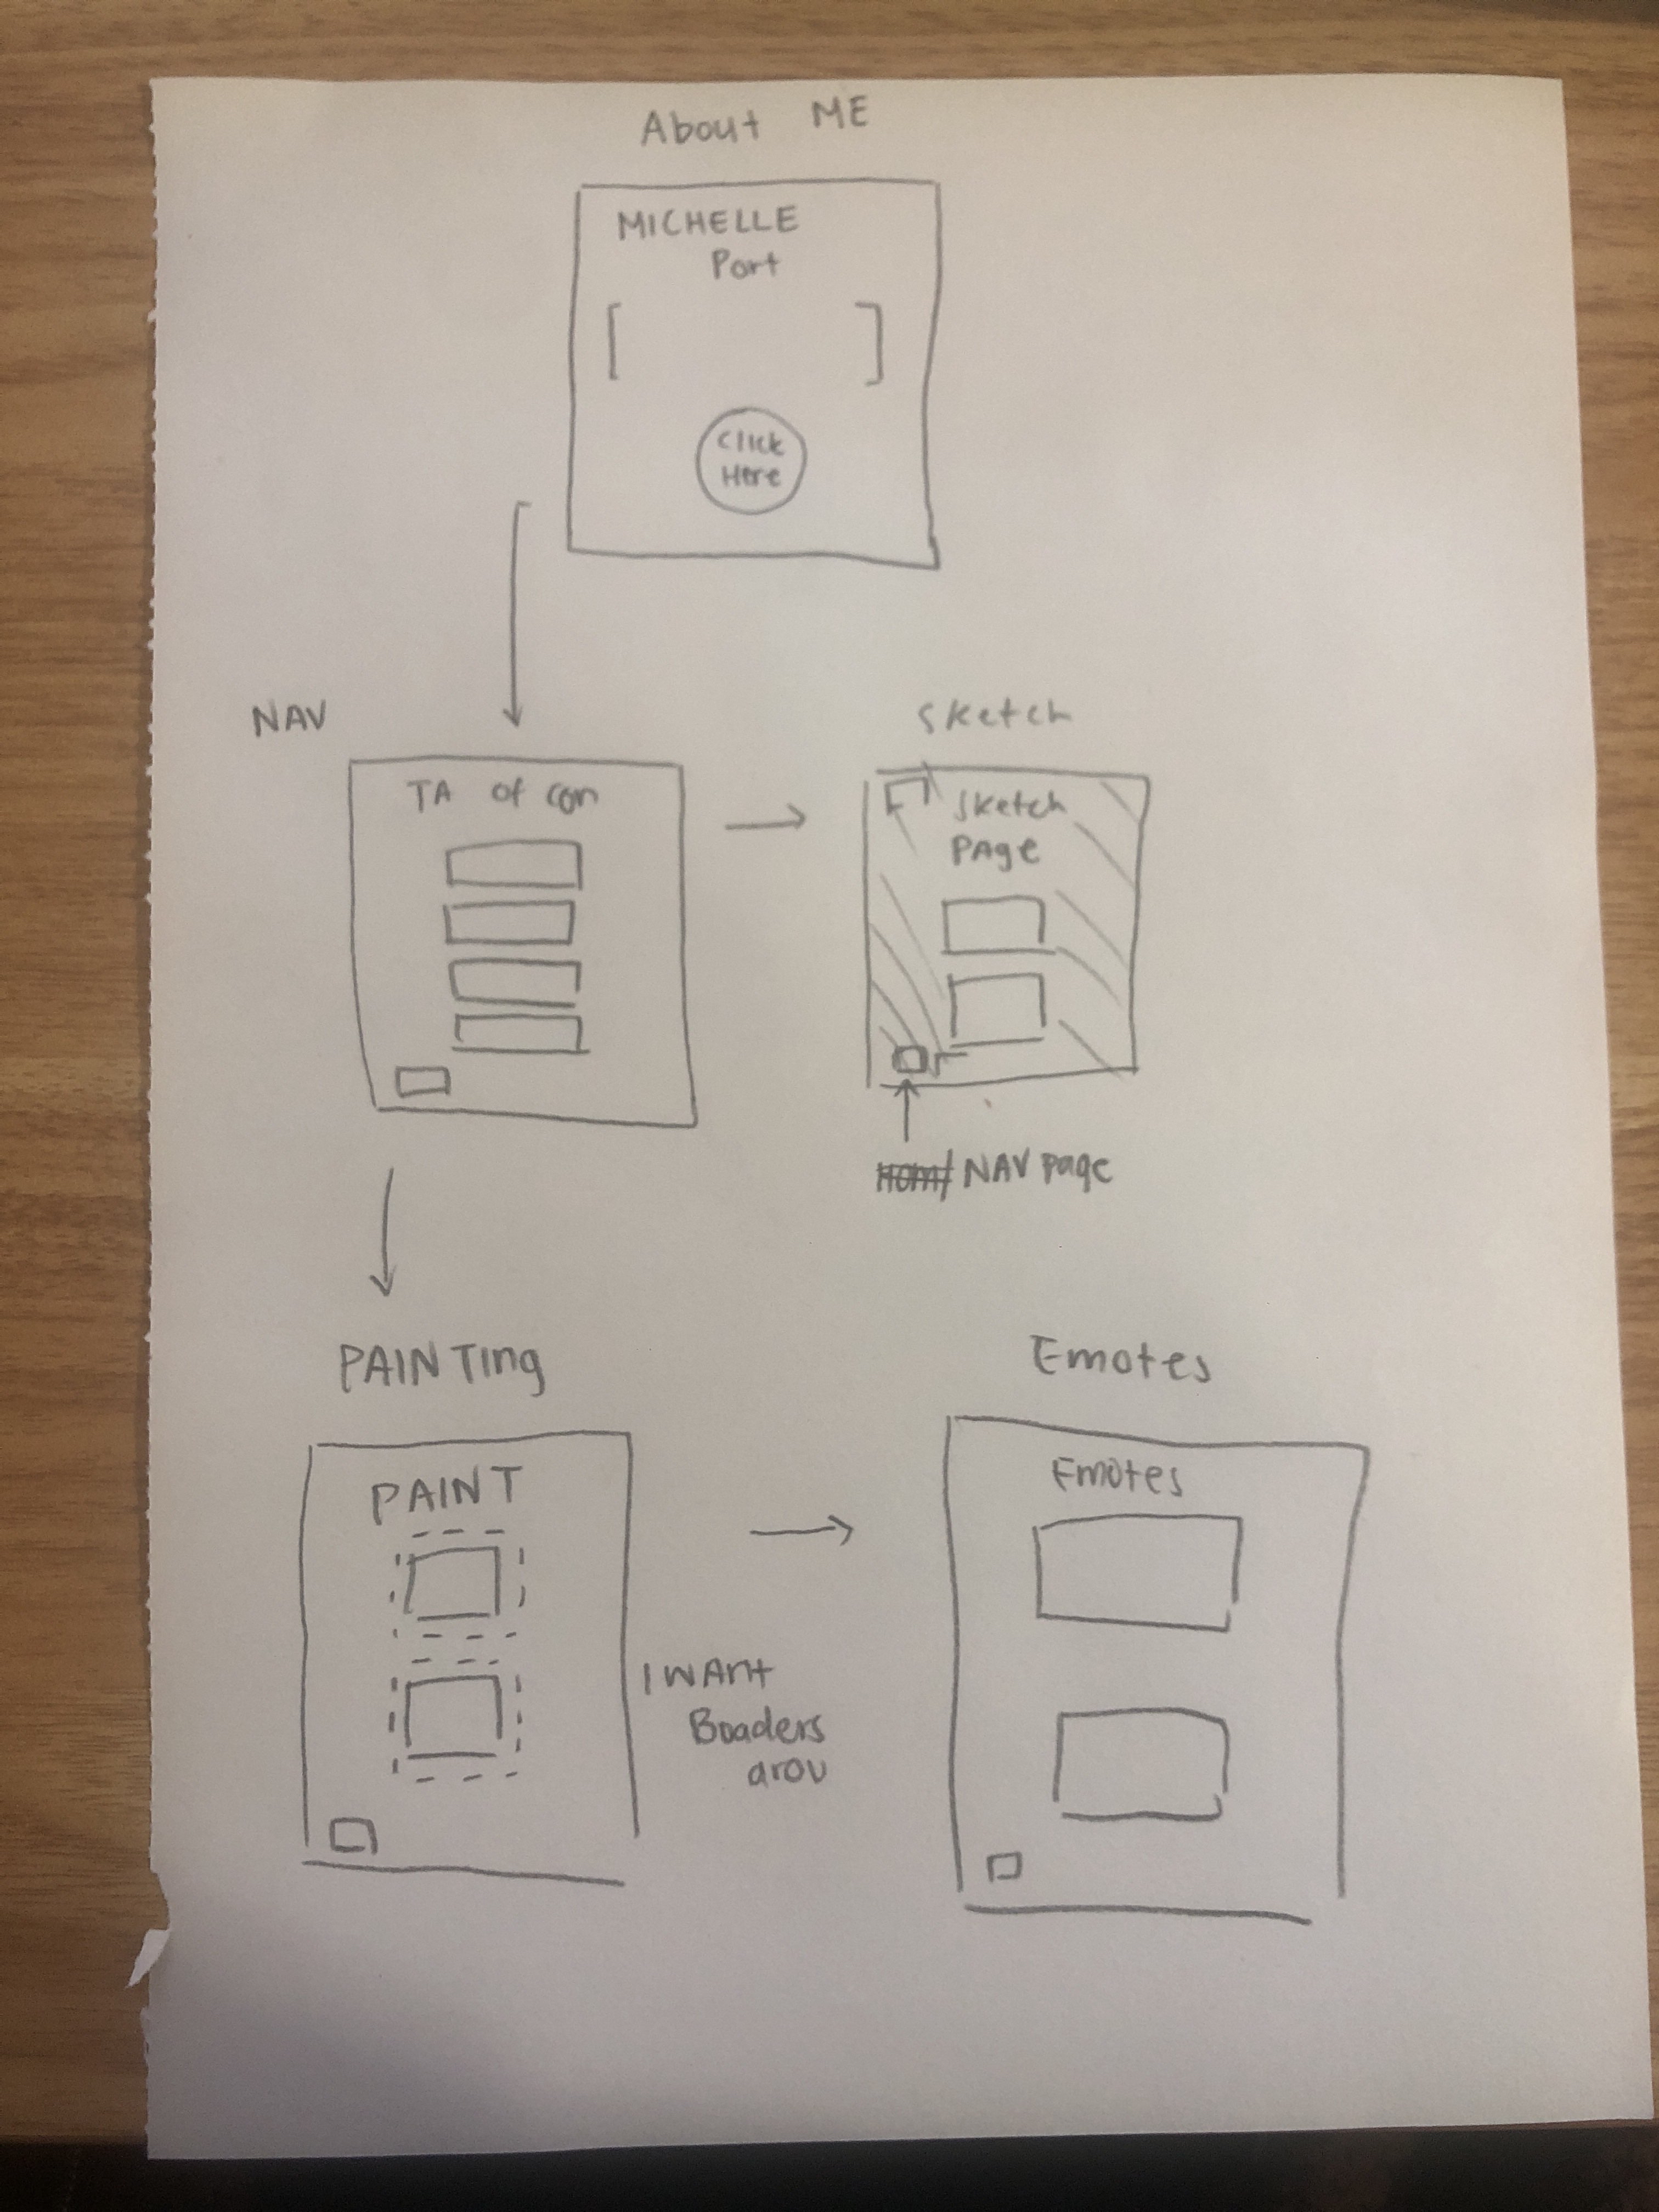 About ME
MICHELLE
Port
Click
Here
NAV
TA of con
Sketch
Sketch
PAge
Hom/ NAV page
PAINTing
PAINT
I WAnt
Boaders
arou
Emotes
Emotes